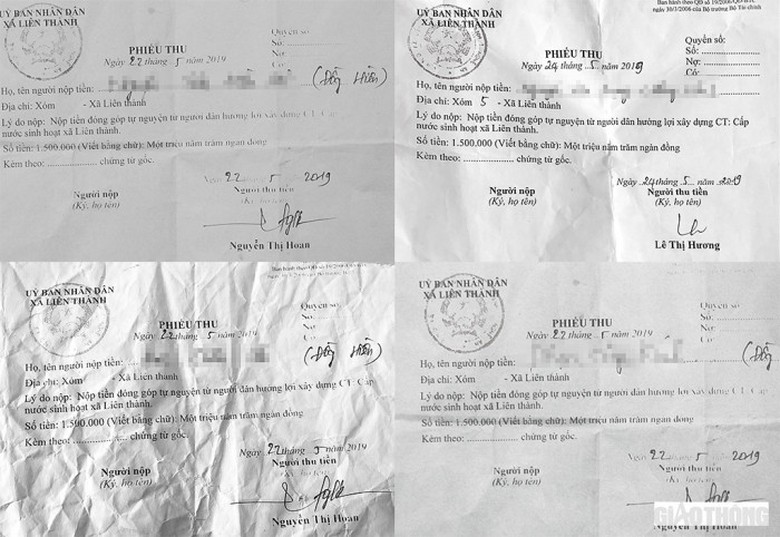 ỦY BAN NHÂN DÂN
XÃ LIÊN THÀNH
Quyển số:
Số:
Nợ:
Có:
PHIẾU THU
Ngày 22 tháng 5 năm 2019
Họ, tên người nộp tiền: (Đồng Hiền)
Địa chỉ: Xóm - Xã Liên thành
Lý do nộp: Nộp tiền đóng góp tự nguyện từ người dân hưởng lợi xây dựng CT: Cấp
nước sinh hoạt xã Liên thành.
Số tiền: 1.500.000 (Viết bằng chữ): Một triệu năm trăm ngàn đồng
Kèm theo: ..................... chứng từ gốc.
Ngày 22 tháng 5 năm 2019
Người nộp
(Ký, họ tên)
Người thu tiền
(Ký, họ tên)
Nguyễn Thị Hoan
Ban hành theo QĐ số 19/2006/QĐ-BTC
ngày 30/3/2006 của Bộ trưởng Bộ Tài chính
ỦY BAN NHÂN DÂN
XÃ LIÊN THÀNH
Quyển số:
Số:
Nợ:
Có:
PHIẾU THU
Ngày 24 tháng 5 năm 2019
Họ, tên người nộp tiền:
Địa chỉ: Xóm 5 - Xã Liên thành
Lý do nộp: Nộp tiền đóng góp tự nguyện từ người dân hưởng lợi xây dựng CT: Cấp
nước sinh hoạt xã Liên thành.
Số tiền: 1.500.000 (Viết bằng chữ): Một triệu năm trăm ngàn đồng
Kèm theo: ..................... chứng từ gốc.
Ngày 24 tháng 5 năm 2019
Người nộp
(Ký, họ tên)
Người thu tiền
(Ký, họ tên)
Lê Thị Hương
ỦY BAN NHÂN DÂN
XÃ LIÊN THÀNH
Quyển số:
Số:
Nợ:
Có:
PHIẾU THU
Ngày 22 tháng 5 năm 2019
Họ, tên người nộp tiền: (Đồng Hiền)
Địa chỉ: Xóm - Xã Liên thành
Lý do nộp: Nộp tiền đóng góp tự nguyện từ người dân hưởng lợi xây dựng CT: Cấp
nước sinh hoạt xã Liên thành.
Số tiền: 1.500.000 (Viết bằng chữ): Một triệu năm trăm ngàn đồng
Kèm theo: ..................... chứng từ gốc.
Ngày 22 tháng 5 năm 2019
Người nộp
(Ký, họ tên)
Người thu tiền
(Ký, họ tên)
Nguyễn Thị Hoan
ỦY BAN NHÂN DÂN
XÃ LIÊN THÀNH
Quyển số:
Số:
Nợ:
Có:
PHIẾU THU
Ngày 22 tháng 5 năm 2019
Họ, tên người nộp tiền: (Đồng
Địa chỉ: Xóm - Xã Liên thành
Lý do nộp: Nộp tiền đóng góp tự nguyện từ người dân hưởng lợi xây dựng CT: Cấp
nước sinh hoạt xã Liên thành.
Số tiền: 1.500.000 (Viết bằng chữ): Một triệu năm trăm ngàn đồng
Kèm theo: ..................... chứng từ gốc.
Ngày 22 tháng 5 năm 2019
Người nộp
(Ký, họ tên)
Người thu tiền
(Ký, họ tên)
Nguyễn Thị Hoan
GIAO THÔNG